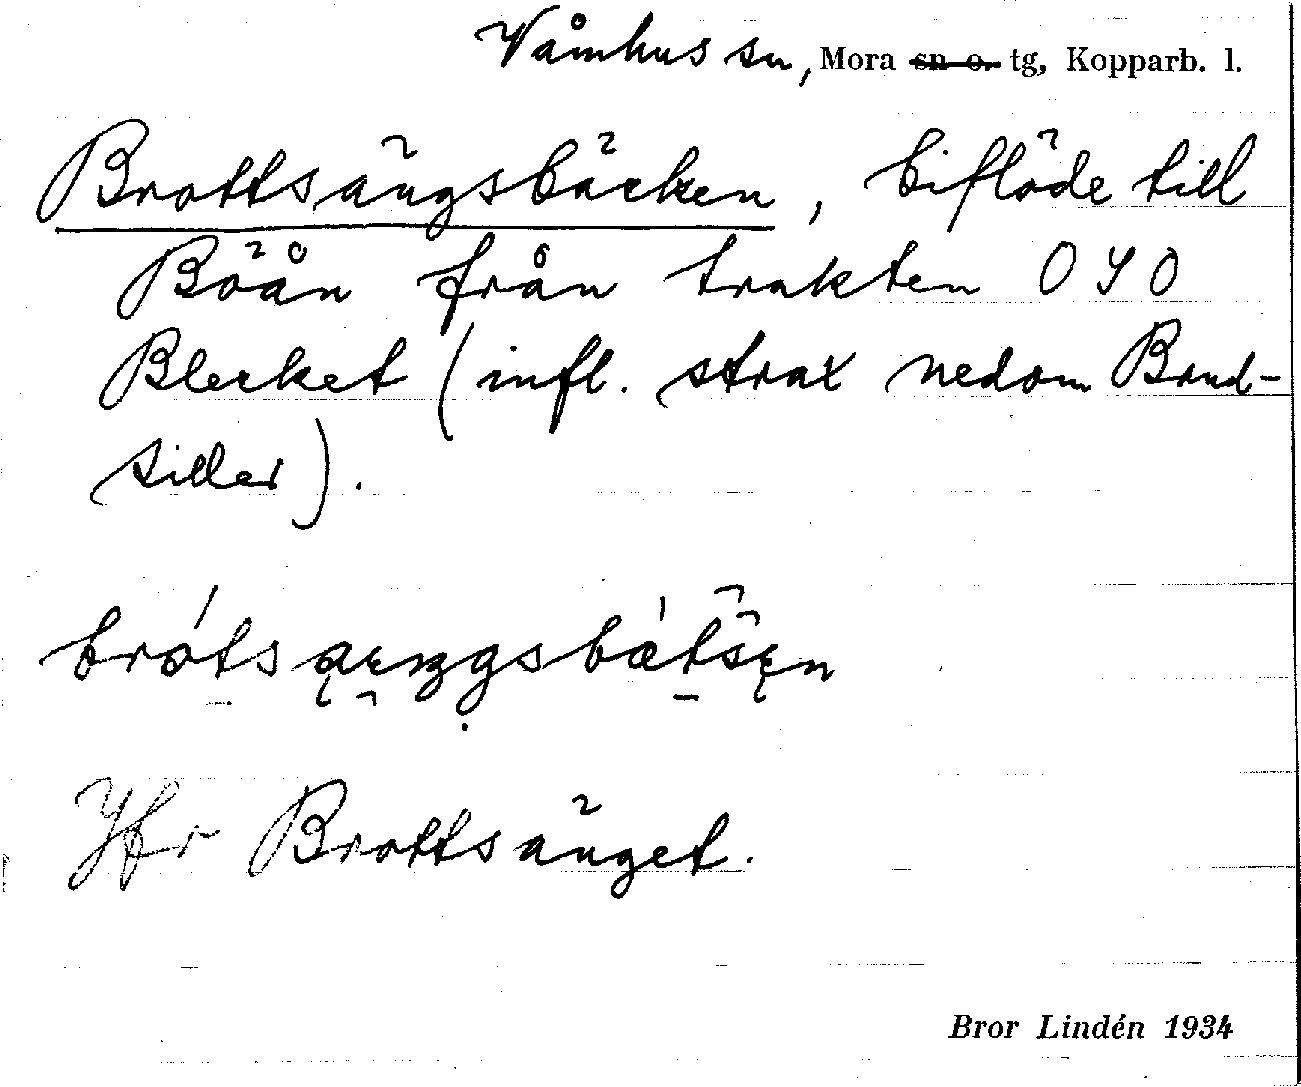 Våmhus sn, Mora sn o. tg, Kopparb. l.
Brottsängsbäcken, biflöde till
Böån från trakten OSO
Blecket (infl. strax nedom Brud-
siller).
Jfr Brottsänget.
Bror Lindén 1934